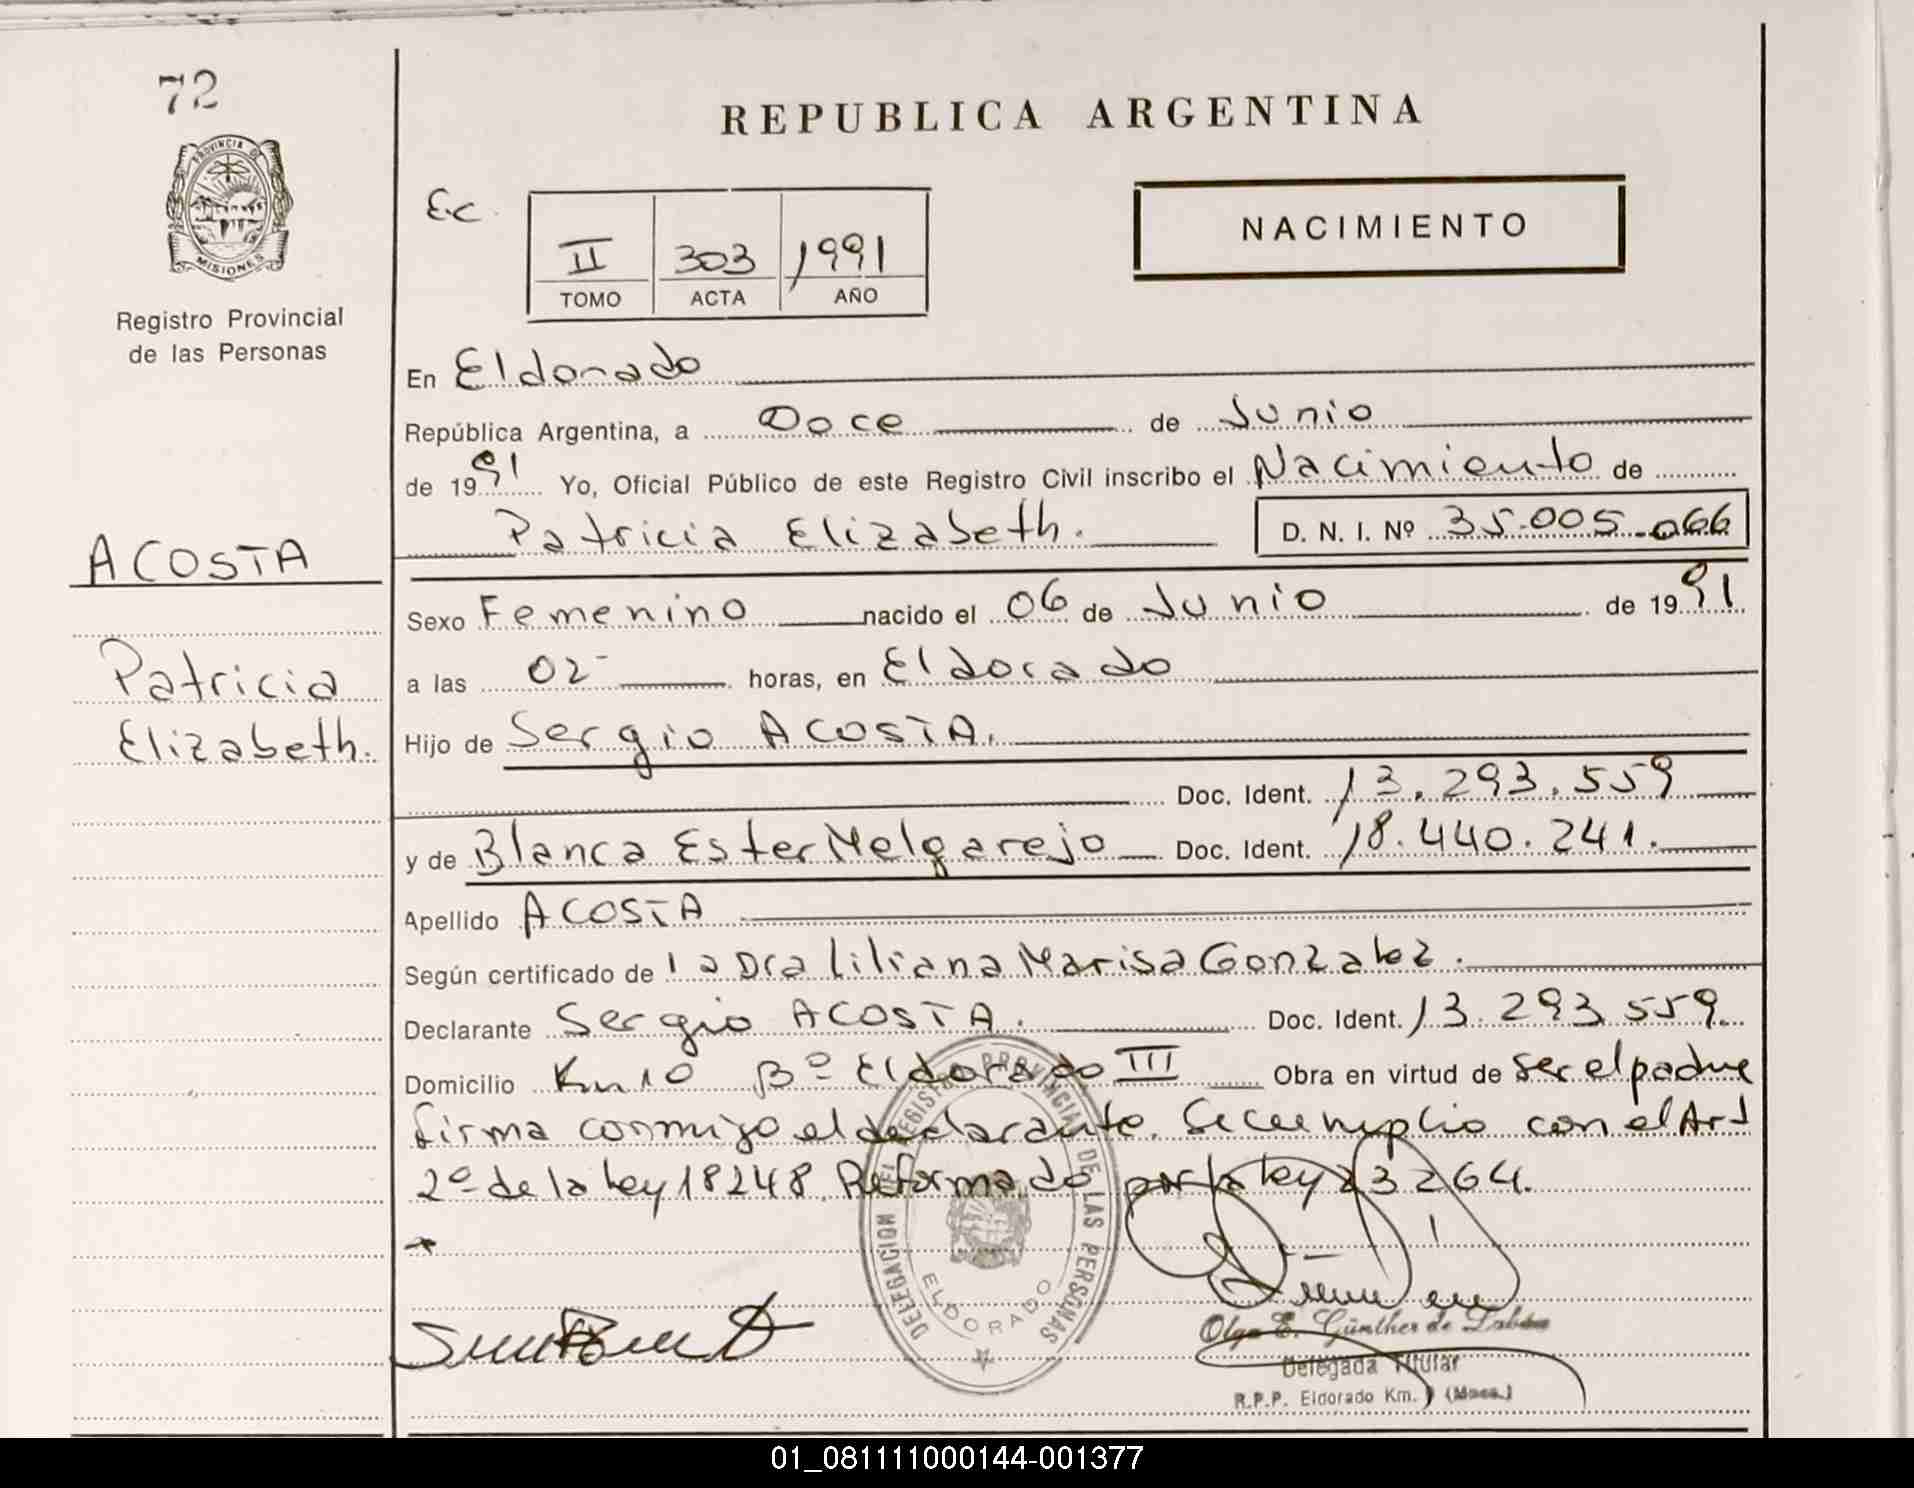 72
PROVINCIA DE
MISIONES
Registro Provincial
de las Personas
ACOSTA
Patricia
Elizabeth.
REPUBLICA ARGENTINA
E.C.
II 303 1991
TOMO ACTA AÑO
NACIMIENTO
En Eldorado
República Argentina, a Doce de Junio
de 1991 Yo, Oficial Público de este Registro Civil inscribo el Nacimiento de
Patricia Elizabeth. D. N. I. Nº 35.005.066
Sexo Femenino nacido el 06 de Junio de 1991
a las 02- horas, en Eldorado
Hijo de Sergio ACOSTA.
Doc. Ident. 13.293.559
y de Blanca Ester Melgarejo Doc. Ident. 18.440.241.
Apellido ACOSTA
Según certificado de la Dra Liliana Marisa Gonzalez.
Declarante Sergio ACOSTA. Doc. Ident. 13.293.559.
Domicilio Km 10 Bº Eldorado III Obra en virtud de ser el padre
firma conmigo el declarante. Se cumplio con el Art
2º de la ley 18248 Reformado por la ley 23264.
DELEGACION DEL REGISTRO PROVINCIAL DE LAS PERSONAS
ELDORADO
Olga E. Günther de
Delegada Titular
R.P.P. Eldorado Km. 9 (Mnes.)
01_081111000144-001377